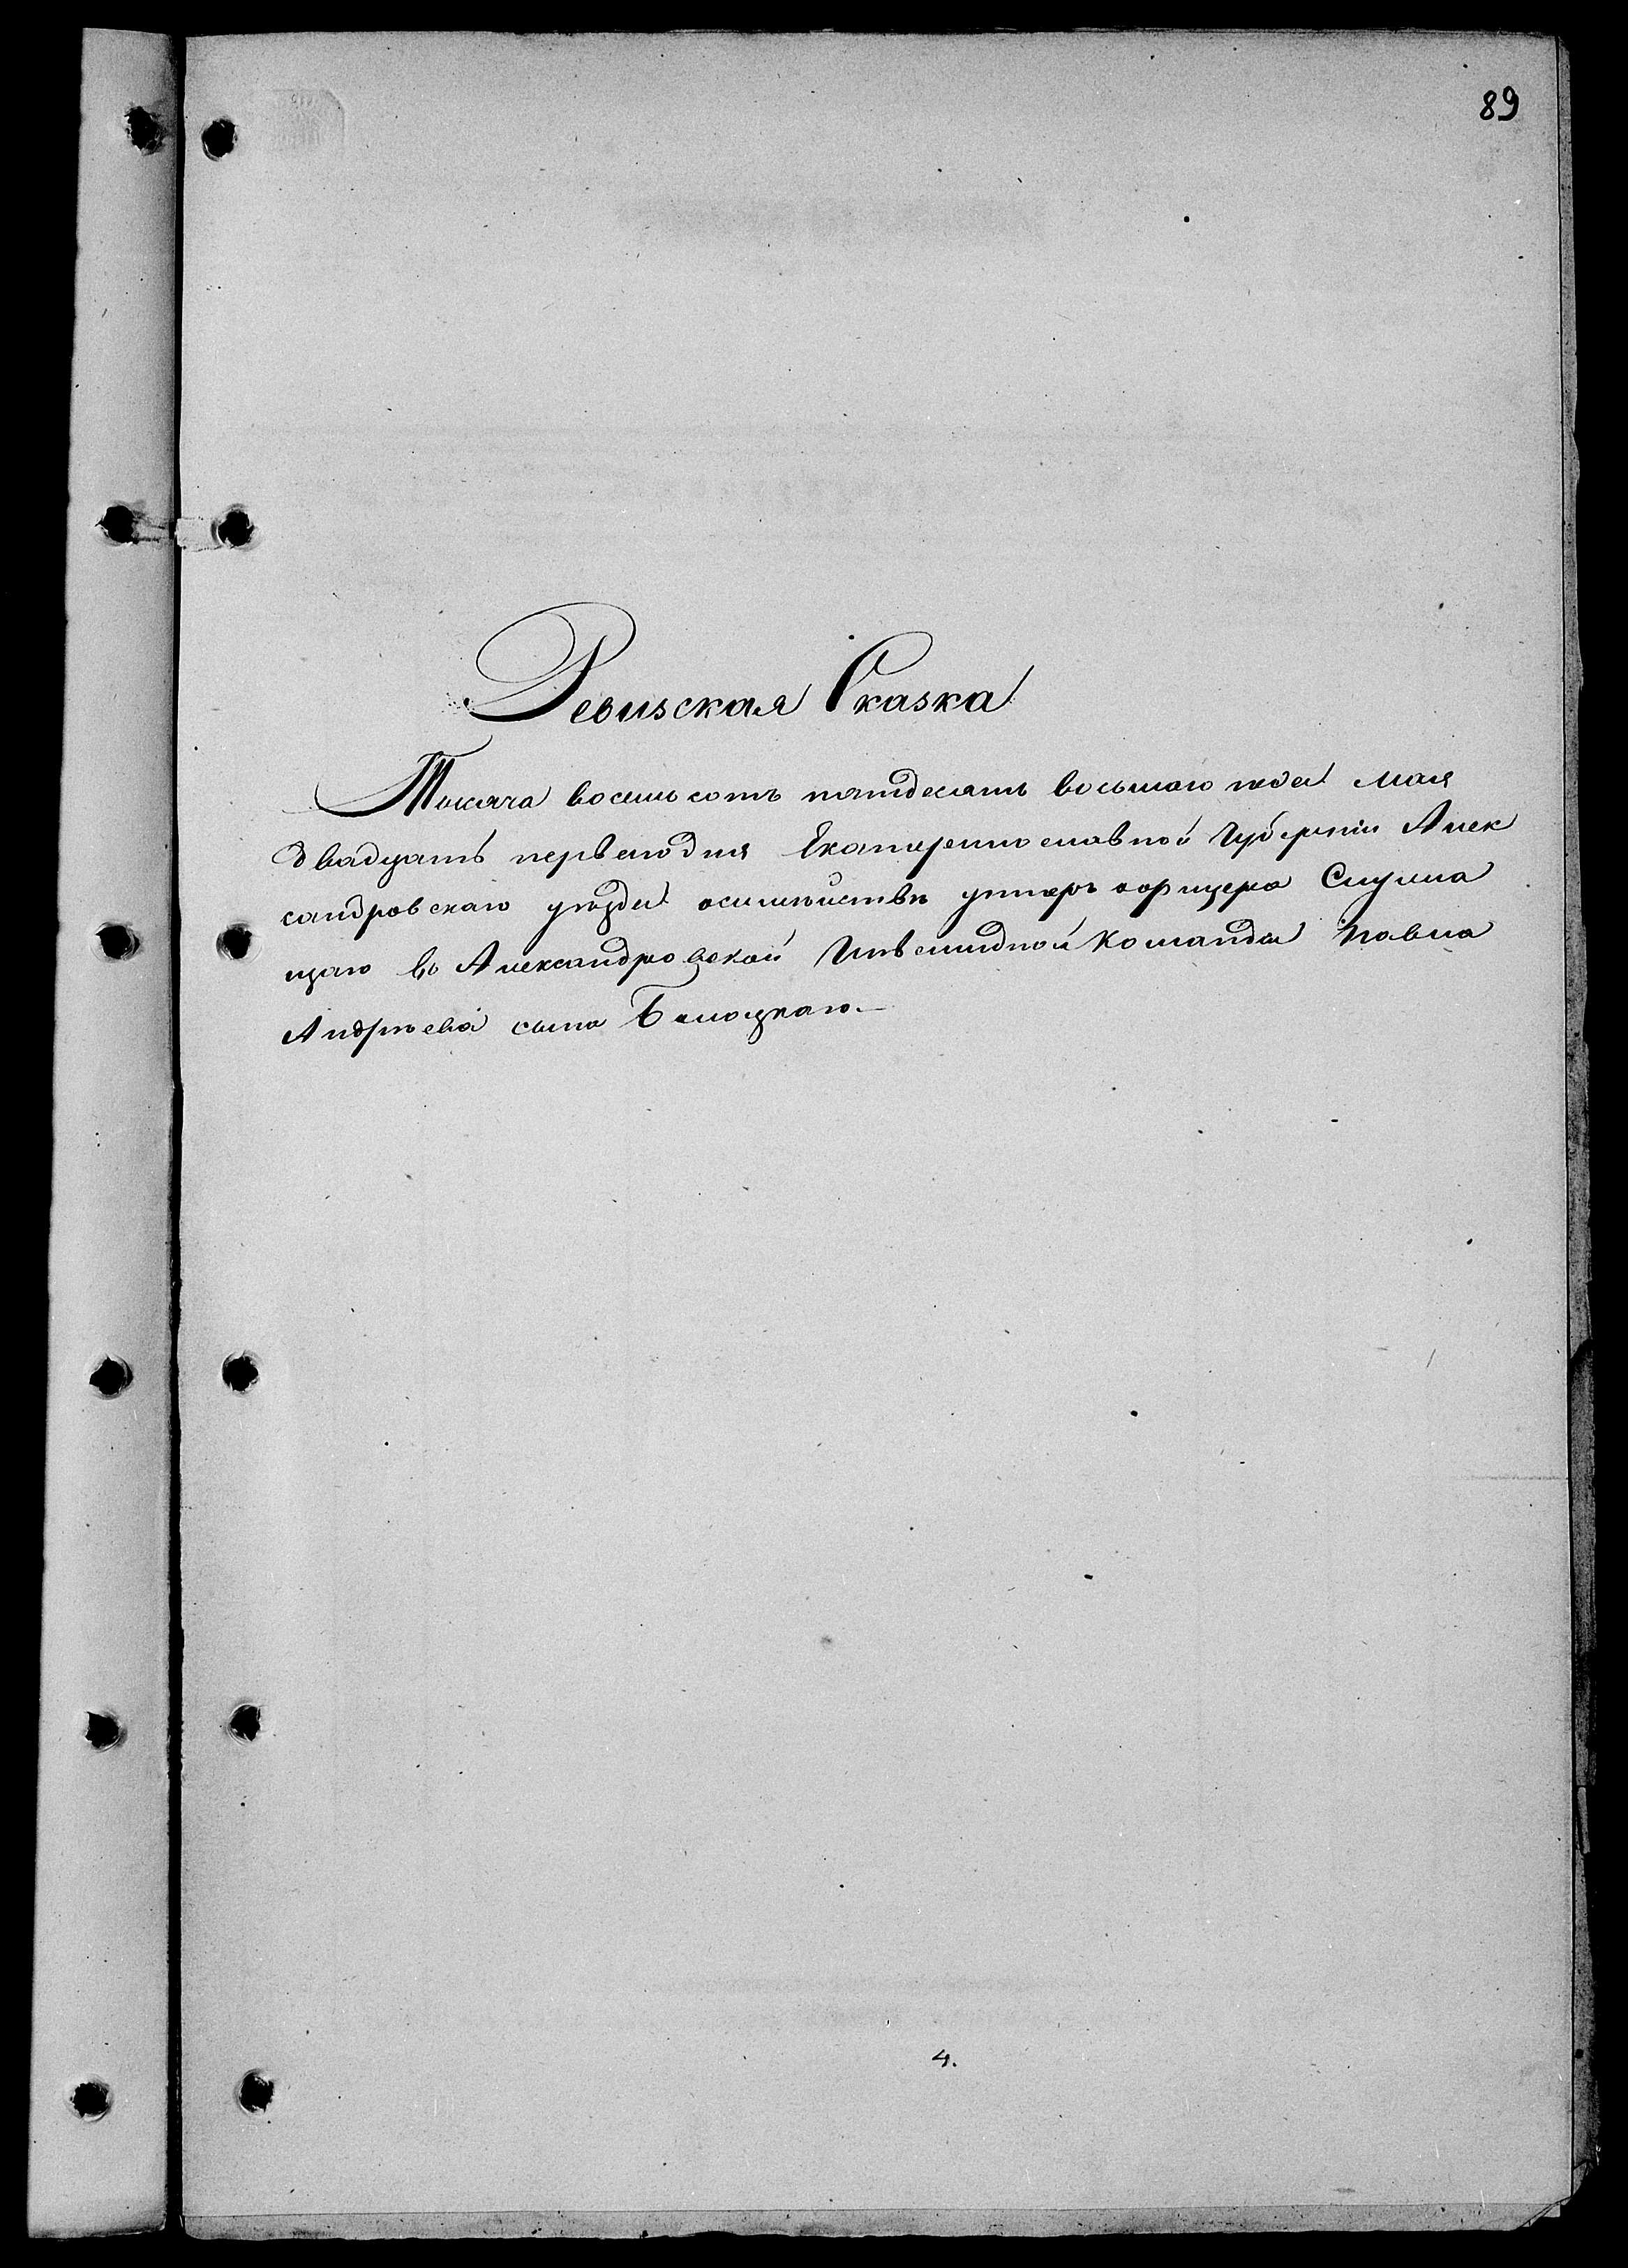 89
Ревизская Сказка
Тысяча восемь сотъ пятдесятъ восьмаго года Мая
двадцать перваго дня Екатеринославной Губерніи Алек
сандровскаго уѣзда о семѣйствѣ унтеръ офицера Служа
щаго въ Александровской Инвалидной Команды Павла
Андреева сына Белоцкаго.
4.